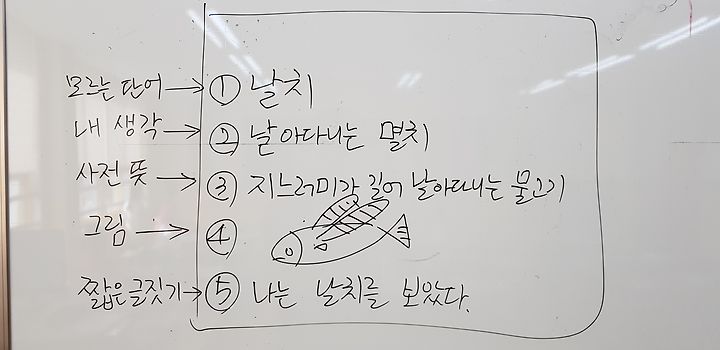 모르는 단어 → ① 날치
내 생각 → ② 날아다니는 멸치
사전 뜻 → ③ 지느러미가 길어 날아다니는 물고기
그림 → ④
짧은글짓기 → ⑤ 나는 날치를 보았다.